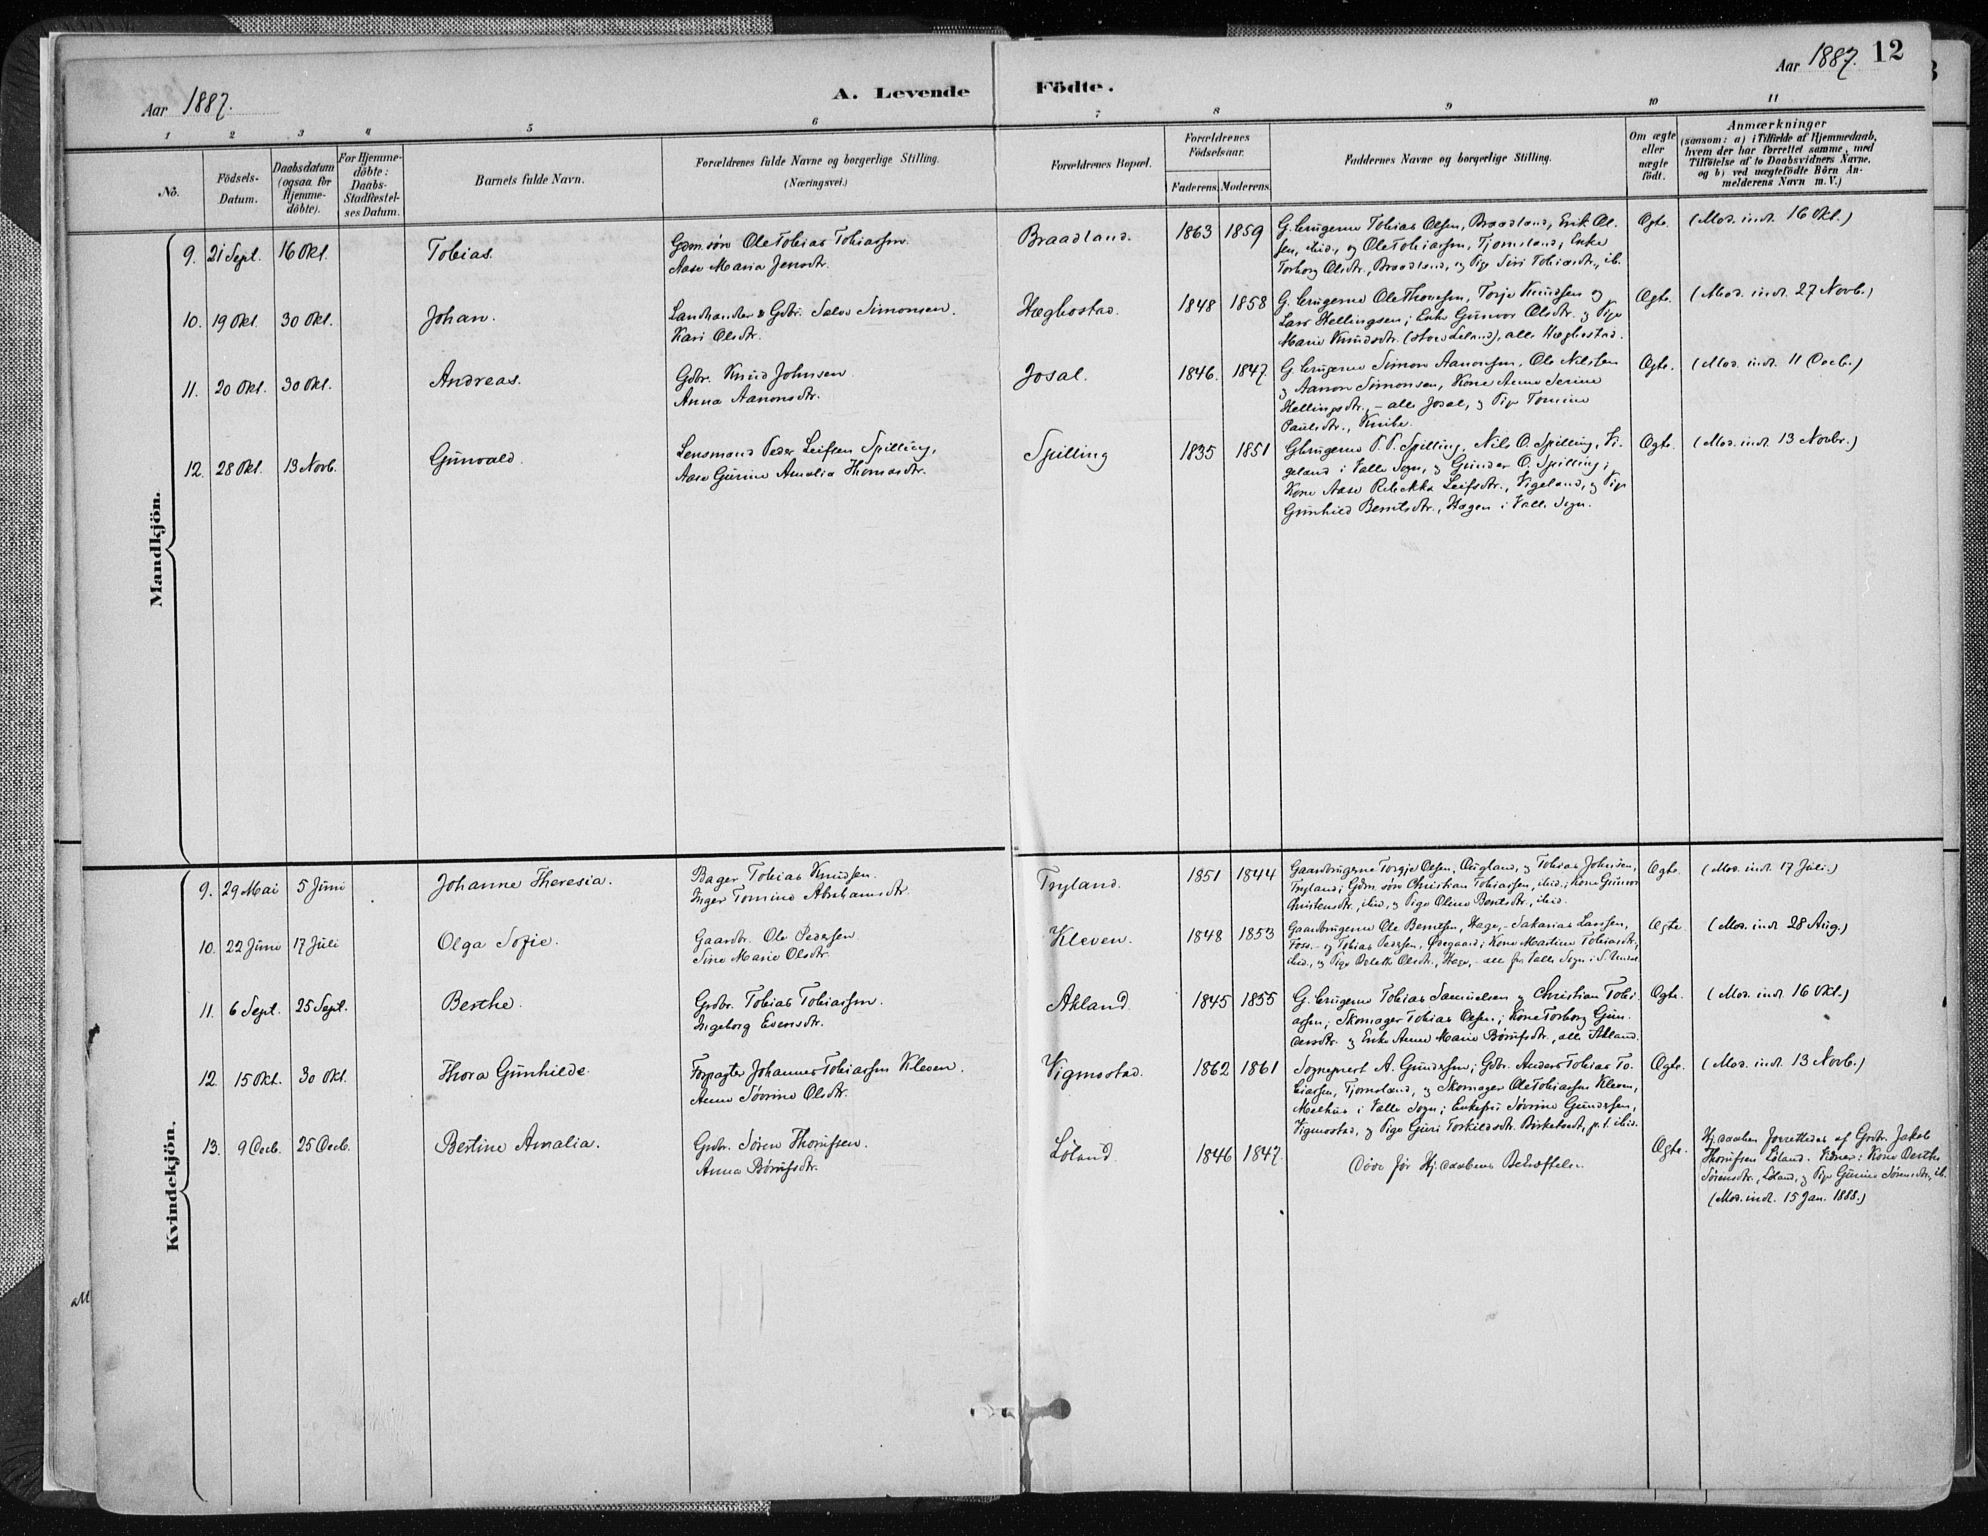 12
Aar 1887.
A. Levende Födte.
Aar 1887.
1 2 3 4 5 6 7 8 9 10 11
No.
Födsels-
Datum.
Daabsdatum
(ogsaa for
Hjemme-
döbte).
For Hjemme-
döbte:
Daabs-
Stadfæstel-
ses Datum.
Barnets fulde Navn.
Forældrenes fulde Navne og borgerlige Stilling.
(Næringsvei.)
Forældrenes Bopæl.
Forældrenes
Födselsaar.
Faderens. Moderens.
Faddernes Navne og borgerlige Stilling.
Om ægte
eller
uægte
födt.
Anmærkninger
(saasom: a) i Tilfælde af Hjemmedaab,
hvem der har forrettet samme, med
Tilföielse af to Daabsvidners Navne,
og b) ved uægtefödte Börn An-
melderens Navn m. V.)
Mandkjön.
9. 21 Sept. 16 Okt. Tobias.
Gdm. søn Ole Tobias Tobiassen.
Aase Maria Jensdtr.
Braadland. 1863 1859
G.brugerne Tobias Olsen, Braadland, Erik Ol-
sen, ibid., og Ole Tobiassen, Tjomsland; Enke
Torborg Olsdtr., Braadland, og Pige Siri Tobiasdtr., ib.
Ægte. (Mod. indt. 16 Okt.)
10. 19 Okt. 30 Okt. Johan.
Landhandler & Gdbr. Salve Simonsen.
Kari Olsdtr.
Hægbostad. 1848 1858
G.brugerne Ole Thomesen, Torje Knudsen og
Lars Hellingsen; Enke Gunvor Olsdtr. og Pige
Marie Knudsdtr. (store Leland), alle Hægbostad.
Ægte. (Mod. indt. 27 Novb.)
11. 20 Okt. 30 Okt. Andreas.
Gdbr. Knud Johnsen.
Anna Aanonsdtr.
Josal. 1846. 1847.
G.brugerne Simon Aanonsen, Ole Nilsen
og Aanon Simonsen, Kone Anne Serine
Hellingsdtr., - alle Josal, og Pige Tomine
Paulsdtr., Knibe.
Ægte. (Mod. indt. 11 Decb.)
12. 28 Okt. 13 Novb. Gunvald.
Lensmand Peder Leifsen Spilling,
Aase Gurine Amalia Thomasdtr.
Spilling 1835 1851
Gbrugerne P. P. Spilling, Nils O. Spilling, Vi-
geland i Valle Sogn, og Gunder O. Spilling;
Kone Aase Rebekka Leifsdtr., Vigeland, og Pige
Gunhild Berntsdtr., Hagen i Valle Sogn.
Ægte. (Mod. indt. 13 Novbr.)
Kvindekjön.
9. 29 Mai 5 Juni Johanne Theresia.
Bager Tobias Knudsen.
Inger Tomine Abrahamsdtr.
Tryland. 1851 1844
Gaardbrugerne Torgje Olsen, Øugland, og Tobias Johnsen,
Tryland; Gdm. søn Christian Tobiassen, ibid.; Kone Gunvor
Christensdtr., ibid., og Pige Olene Berntsdtr., ibid.
Ægte. (Mod. indt. 17 Juli.)
10. 22 Juni 17 Juli Olga Sofie.
Gaardbr. Ole Pedersen
Sine Marie Olsdtr.
Kleven. 1848 1853
Gaardbrugerne Ole Berntsen, Hage, - Sakarias Larssen,
Foss - og Tobias Pedersen, Øvregaard; Kone Martine Tobiasdtr.,
ibid., og Pige Olsdtr., Hage, - alle fra Valle Sogn i S. Undal
Ægte (Mod. indt. 28 Aug.)
11. 6 Sept. 25 Sept. Berthe.
Grdbr. Tobias Tobiassen.
Ingeborg Evensdtr.
Akland. 1845 1855
G.brugerne Tobias Samuelsen og Christian Tobi-
assen; Skomager Tobias Olsen; Kone Torborg Gun-
dersdtr. og Enke Anne Marie Børufsdtr., alle Akland.
Ægte. (Mod. indt. 16 Okt.)
12. 15 Okt. 30 Okt. Thora Gunhilde.
Forpagter Johannes Tobiassen Kleven.
Anne Sørine Olsdtr.
Vigmostad. 1862 1861
Sogneprest A. Gundersen; Gdbr. Anders Tobias To-
biassen, Tjomsland, og Skomager Ole Tobiassen Kleven,
Melhus i Valle Sogn; Enkefru Sørine Gundersen,
Vigmostad, og Pige Guri Torkildsdtr. Birketvedt, p. t. ibid.
Ægte. (Mod. indt. 13 Novb.)
13. 9 Decb. 25 Decb. Bertine Amalia.
Grdbr. Sören Thorufsen.
Anna Børufsdtr.
Löland. 1846 1847
Døde før Hj.daabens Bekræftelse.
Ægte.
Hj.daaben forrettedes af Grdbr. Jakob
Thorufsen Löland. Vidner: Kone Berthe
Sörensdtr., Löland, og Pige Gurine Sörensdtr., ib.
(Mod. indt. 15 Jan. 1888.)
all